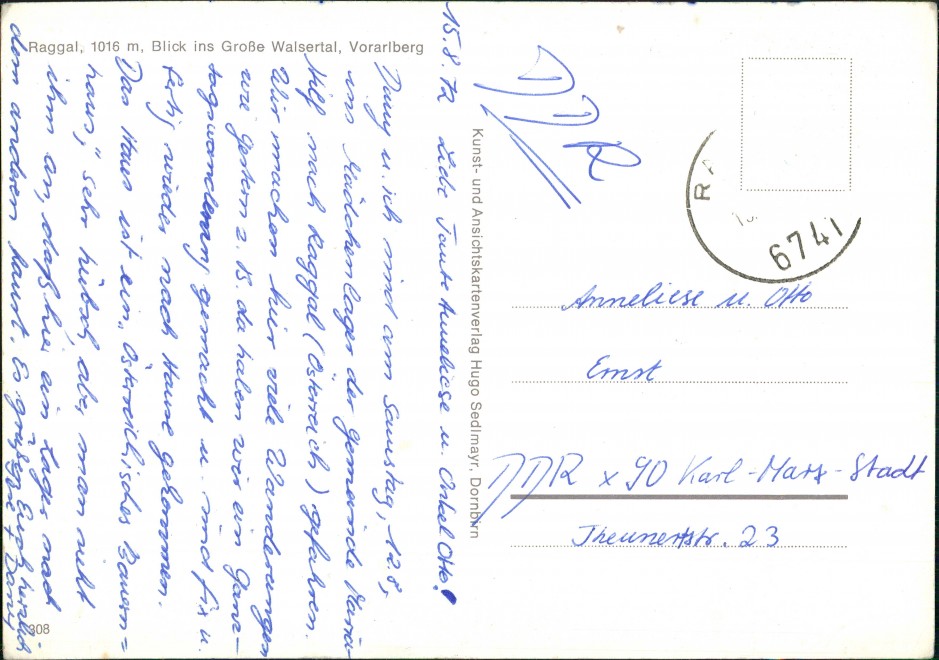 Raggal, 1016 m, Blick ins Große Walsertal, Vorarlberg
15.8.72 Liebe Tante Anneliese u. Onkel Otto!
Dany u. ich sind am Samstag, 12.8,
ins Mädchenlager der Gemeinde Maria
Hilf nach Raggal (Österreich) gefahren.
Wir machen hier viele Wanderungen
wie gestern z. B. da haben wir ein Ganz-
tagswanderung gemacht u. sind fix u.
fertig wieder nach Hause gekommen.
Das Haus ist ein "Österreichisches Bauern=
haus," sehr hübsch, aber man sieht
ihm an, daß hier ein Lager nach
dem andern haust. Es grüßen Euch herzlich
+ Dany
308
Kunst- und Ansichtskartenverlag Hugo Sedlmayr, Dornbirn
DDR
R
6741
Anneliese u. Otto
Ernst
DDR x90 Karl-Marx-Stadt
Theunertstr. 23